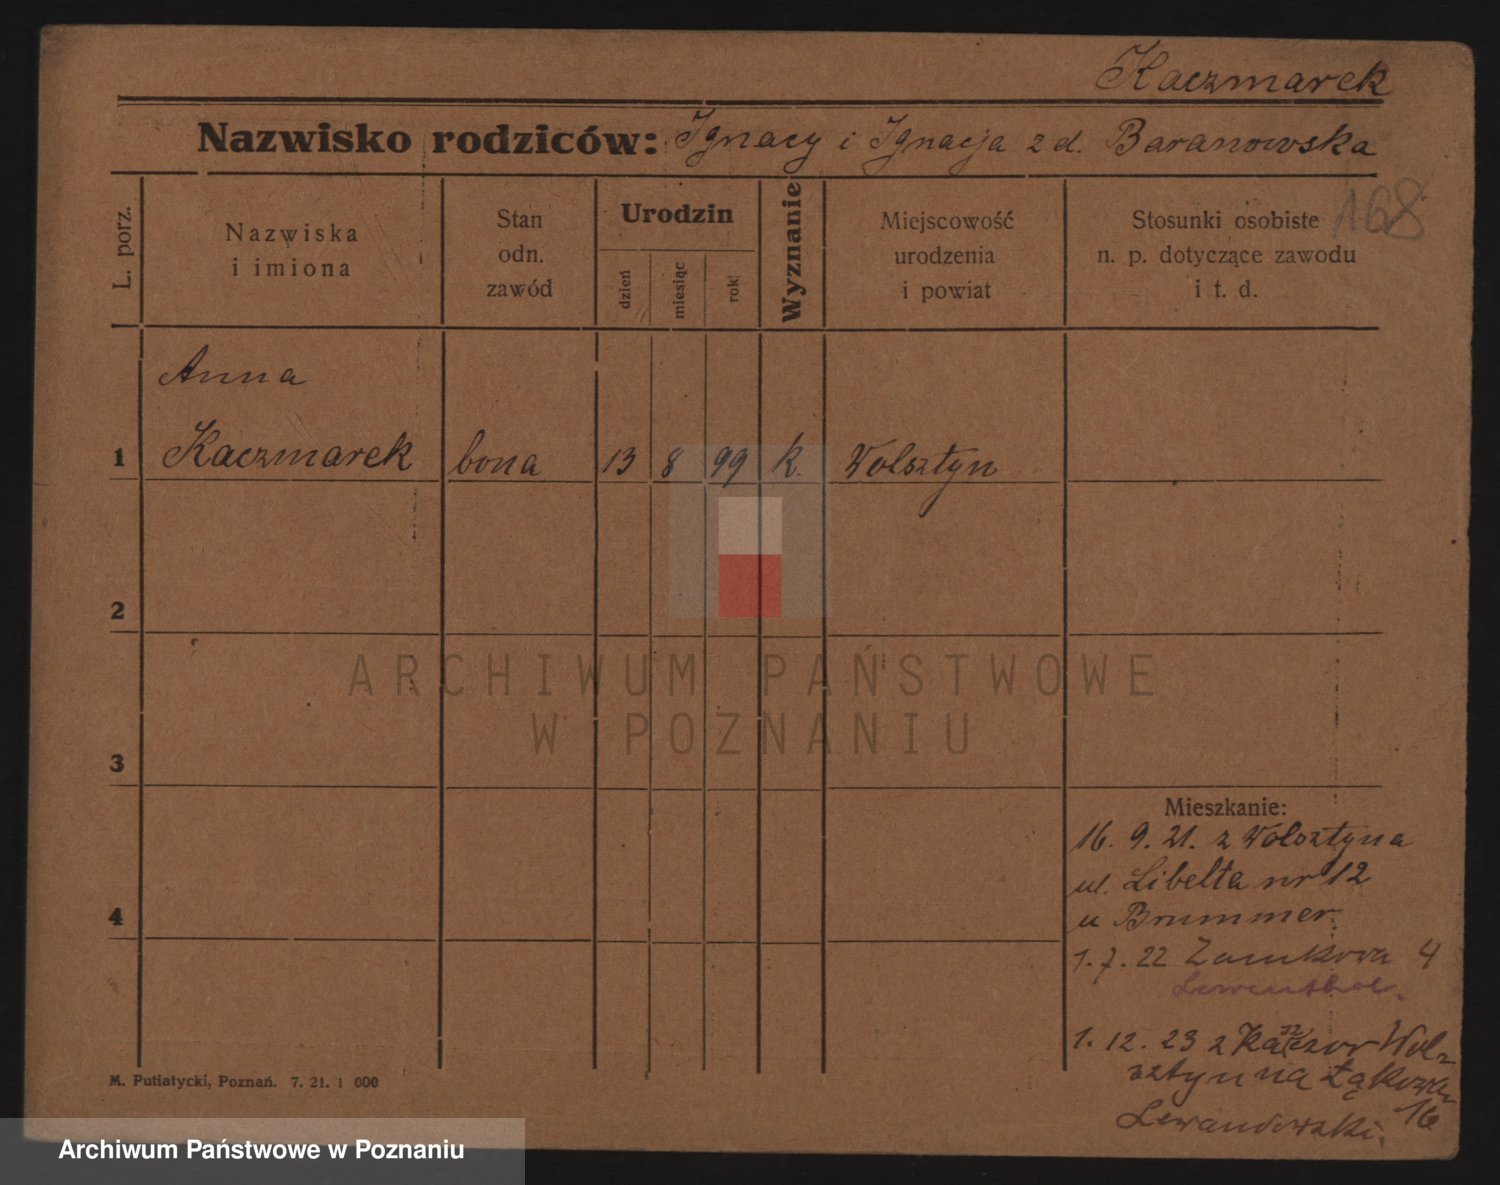 Kaczmarek
Nazwisko rodziców: Ignacy i Ignacja z d. Baranowska
168
L. porz.
Nazwiska
i imiona
Stan
odn.
zawód
Urodzin
dzień
miesiąc
rok
Wyznanie
Miejscowość
urodzenia
i powiat
Stosunki osobiste
n. p. dotyczące zawodu
i t. d.
Anna
1 Kaczmarek bona 13 8 99 k. Wolsztyn
2
3
4
ARCHIWUM PAŃSTWOWE
W POZNANIU
Mieszkanie:
16. 9. 21. z Wolsztyna
ul. Libelta nr 12
u Brummer.
1. 7. 22 Zamkowa 4
1. 12. 23 z Wol-
sztyn na Łąkowa
16
Lewandowski.
M. Putiatycki, Poznań. 7. 21. 1 000
Archiwum Państwowe w Poznaniu